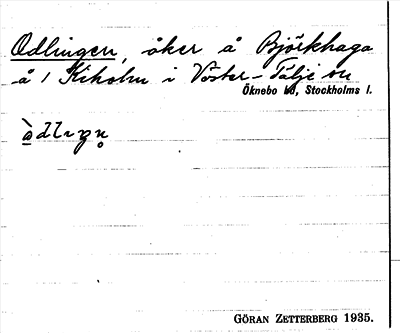 Odlingen, åker å Björkhaga
å 1 Ekeholm i Väster-Tälje sn
Öknebo hd, Stockholms l.
GÖRAN ZETTERBERG 1935.